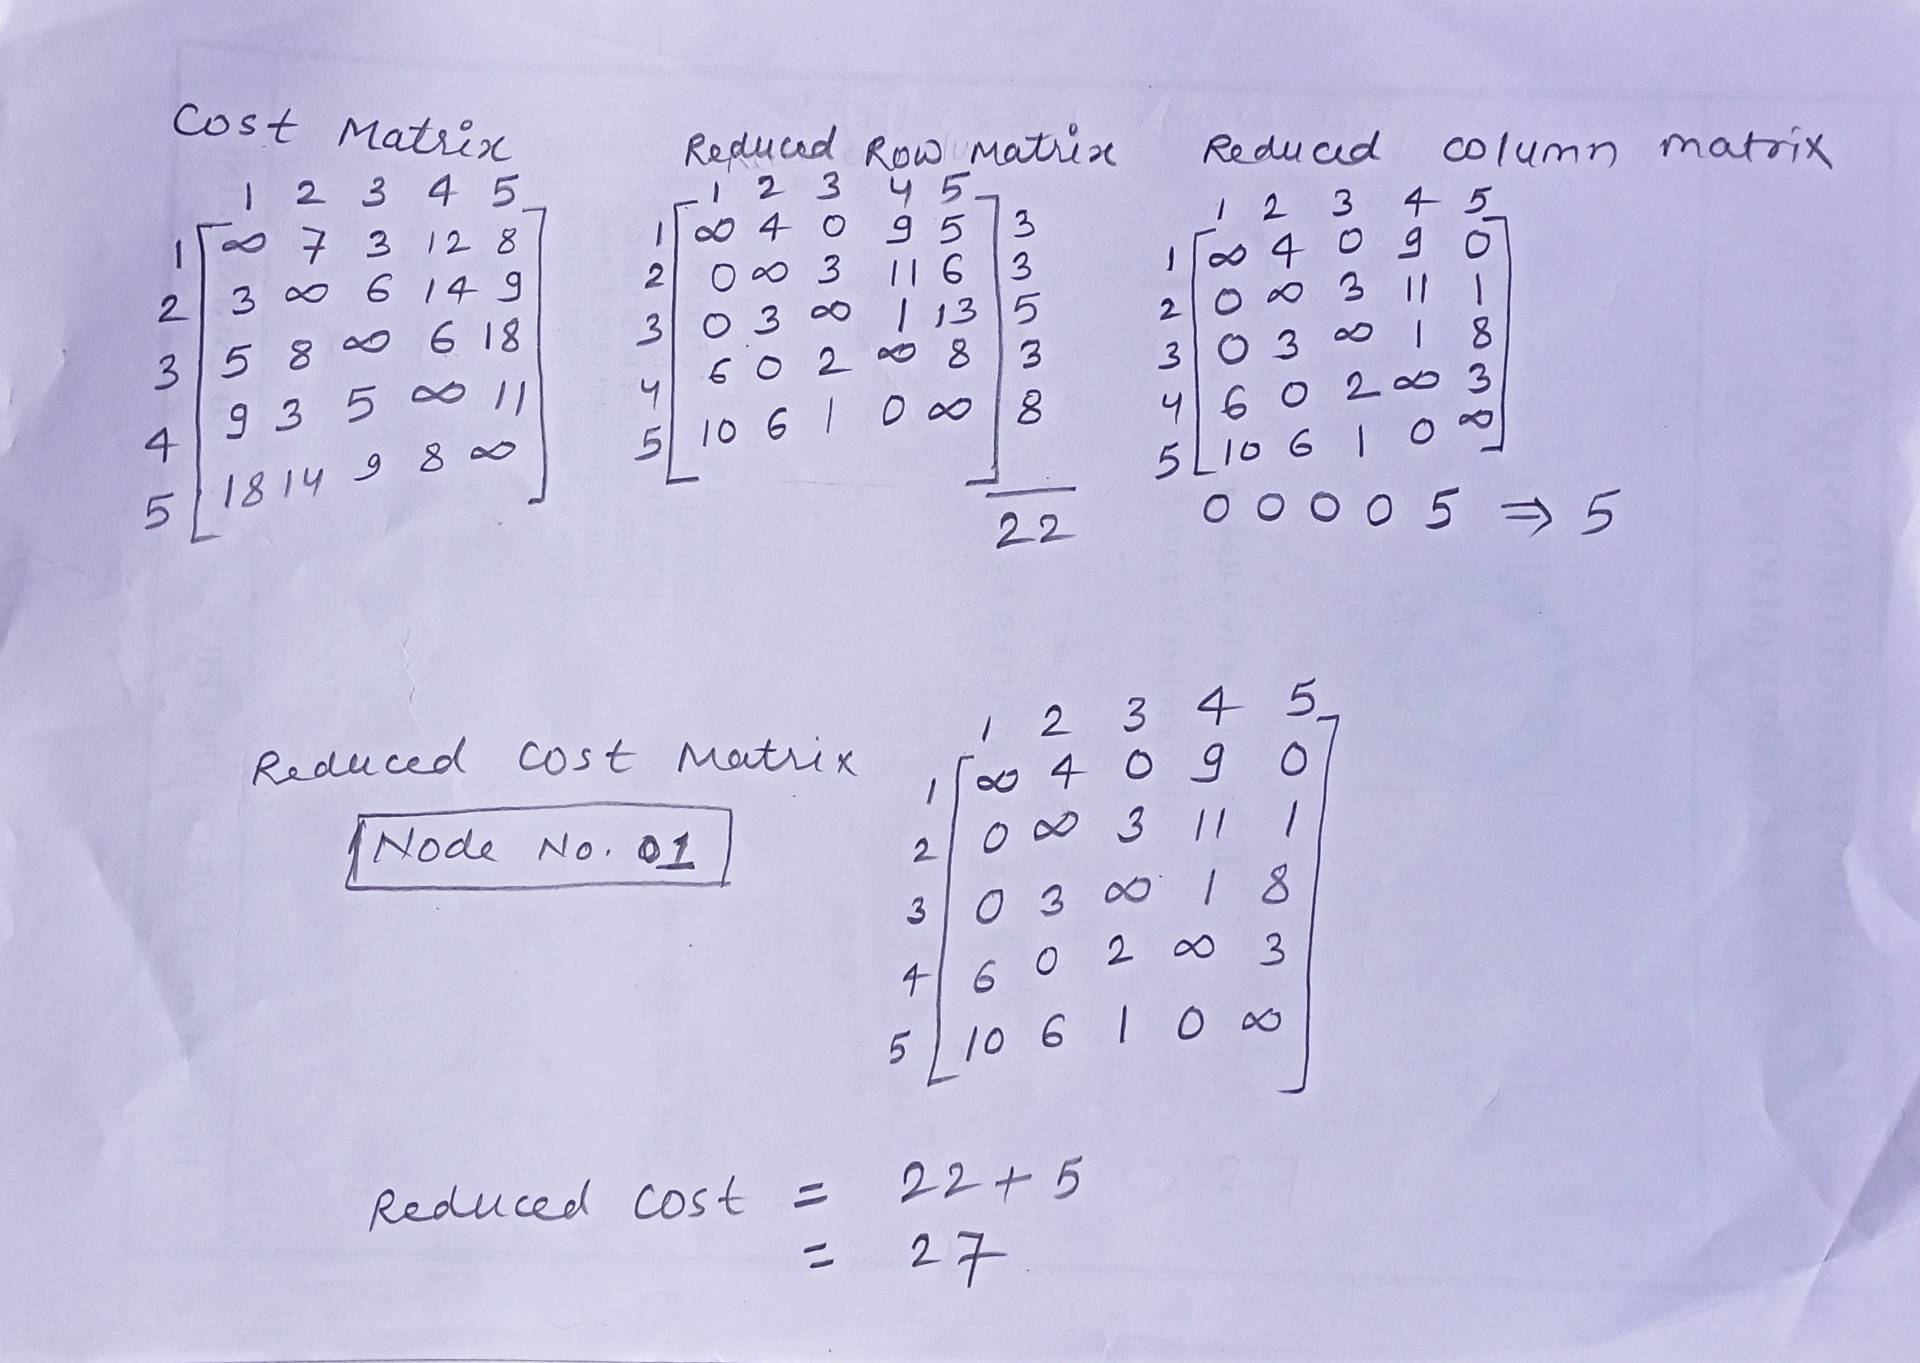 Cost Matrix
1 2 3 4 5
1 ∞ 7 3 12 8
2 3 ∞ 6 14 9
3 5 8 ∞ 6 18
4 9 3 5 ∞ 11
5 18 14 9 8 ∞
Reduced Row Matrix
1 2 3 4 5
1 ∞ 4 0 9 5 3
2 0 ∞ 3 11 6 3
3 0 3 ∞ 1 13 5
4 6 0 2 ∞ 8 3
5 10 6 1 0 ∞ 8
22
Reduced column matrix
1 2 3 4 5
1 ∞ 4 0 9 0
2 0 ∞ 3 11 1
3 0 3 ∞ 1 8
4 6 0 2 ∞ 3
5 10 6 1 0 ∞
0 0 0 0 5 ⇒ 5
Reduced cost Matrix
Node No. 01
1 2 3 4 5
1 ∞ 4 0 9 0
2 0 ∞ 3 11 1
3 0 3 ∞ 1 8
4 6 0 2 ∞ 3
5 10 6 1 0 ∞
Reduced cost = 22 + 5
= 27